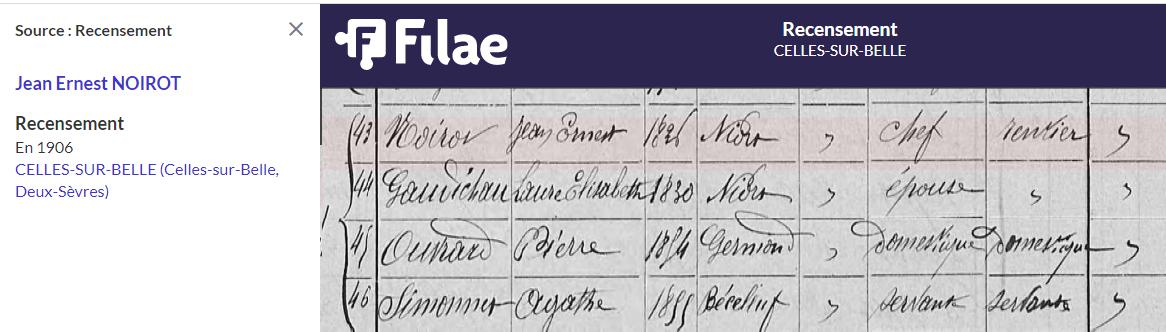 Source : Recensement
×
Jean Ernest NOIROT
Recensement
En 1906
CELLES-SUR-BELLE (Celles-sur-Belle,
Deux-Sèvres)
Filae
Recensement
CELLES-SUR-BELLE
43 Noirot Jean Ernest 1826 Niort " chef rentier "
44 Gaudichau Laure Elisabeth 1830 Niort " épouse " "
45 Pierre 1854 Germond " Domestique Domestique "
46 Simonnet Agathe 1855 " servante servante "